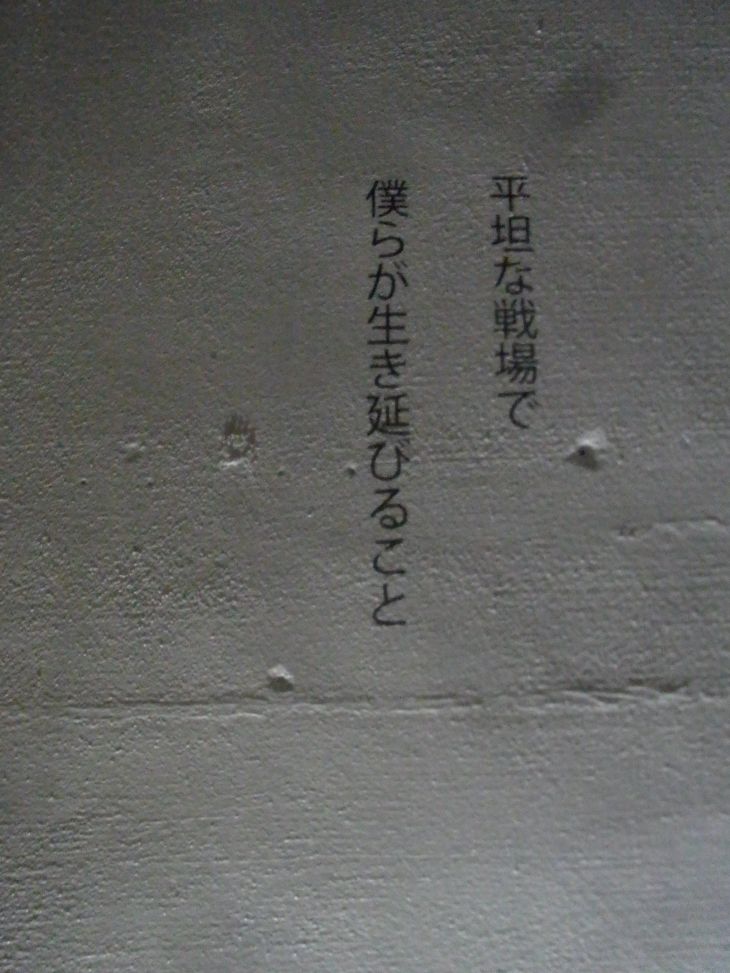 平坦な戦場で
僕らが生き延びること